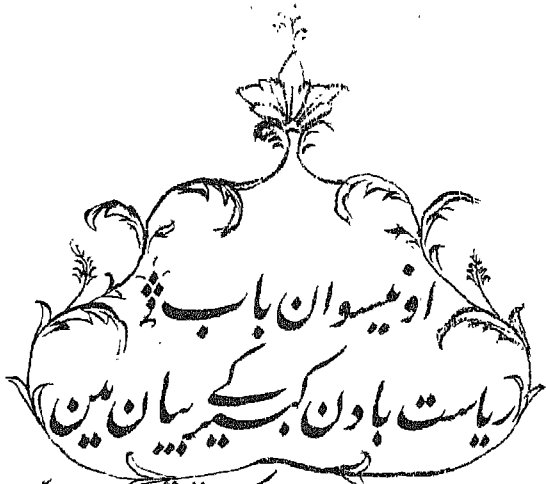 اونیسوان باب
ریاست بادن کبیر کے بیان مین